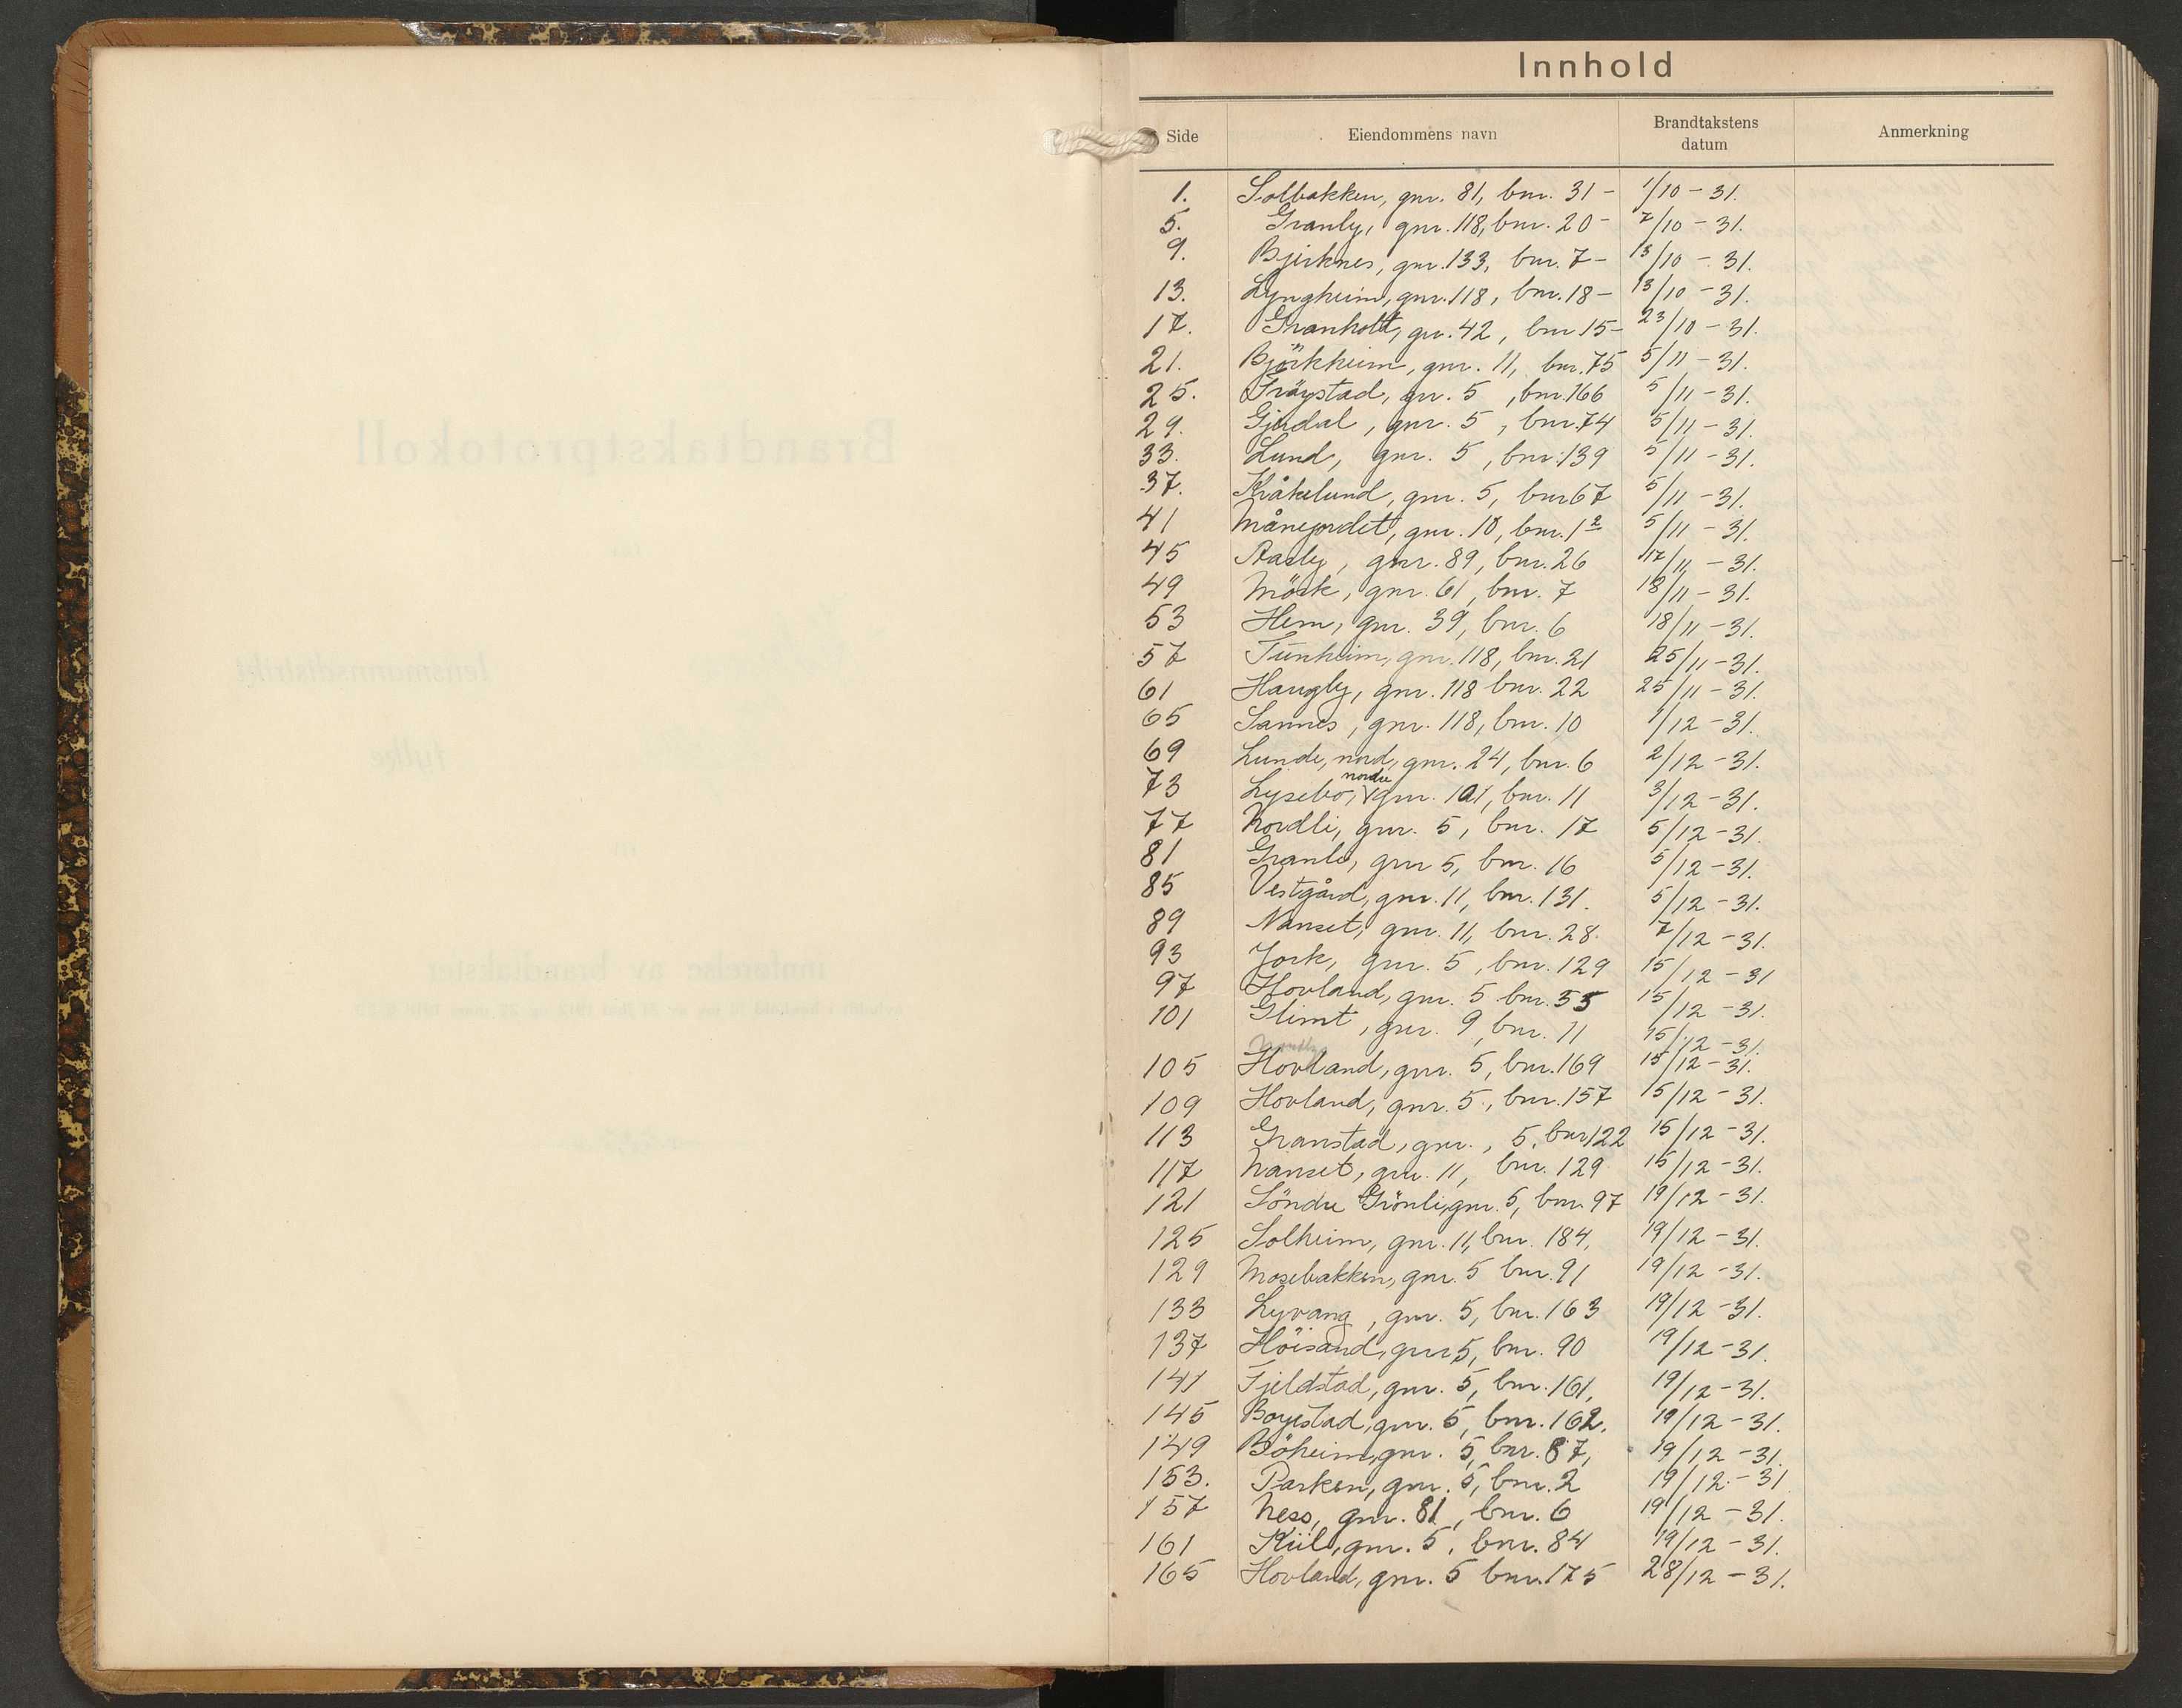 Innhold
Side Eiendommens navn Brandtakstens datum Anmerkning
1. Solbakken, gnr. 81, bnr. 31 - 1/10 - 31.
5. Granly, gnr. 118, bnr. 20 - 7/10 - 31.
9. Bjerknes, gnr. 133, bnr. 7 - 13/10 - 31.
13. Lyngheim, gnr. 118, bnr. 18 - 13/10 - 31.
17. Granholt, gnr. 42, bnr 15 - 23/10 - 31.
21. Björkheim, gnr. 11, bnr. 75 5/11 - 31.
25. Fröystad, gnr. 5, bnr. 166 5/11 - 31.
29. Gjerdal, gnr. 5, bnr. 74 5/11 - 31.
33. Lund, gnr. 5, bnr. 139 5/11 - 31.
37. Kråkelund, gnr. 5, bnr 67 5/11 - 31.
41 Månejordet, gnr. 10, bnr. 1 2 5/11 - 31.
45 Aasly, gnr. 89, bnr. 26 17/11 - 31.
49 Mörk, gnr. 61, bnr. 7 18/11 - 31.
53 Hem, gnr. 39, bnr. 6 18/11 - 31.
57 Tunheim, gnr. 118, bnr. 21 25/11 - 31.
61 Haugly, gnr. 118 bnr. 22 25/11 - 31.
65 Sannes, gnr. 118, bnr. 10 1/12 - 31.
69 Lunde, nord, gnr. 24, bnr. 6 2/12 - 31.
73 Lysebo, nordre gnr. 101, bnr. 11 3/12 - 31.
77 Nordli, gnr. 5, bnr. 17 5/12 - 31.
81 Granli, gnr 5, bnr. 16 5/12 - 31.
85 Vestgård, gnr. 11, bnr. 131. 5/12 - 31.
89 Nanset, gnr. 11, bnr. 28. 7/12 - 31.
93 York, gnr. 5, bnr. 129 15/12 - 31
97 Hovland, gnr. 5 bnr. 55 15/12 - 31.
101 Glimt, gnr. 9, bnr. 11 15/12 - 31.
105 Hovland, gnr. 5, bnr. 169 15/12 - 31.
109 Hovland, gnr. 5, bnr. 157 15/12 - 31.
113 Granstad, gnr., 5, bnr 122 15/12 - 31.
117 Nanset, gnr. 11, bnr. 129 15/12 - 31.
121 Söndre Grönli, gnr. 5, bnr. 97 19/12 - 31.
125 Solheim, gnr. 11, bnr. 184, 19/12 - 31.
129 Mosebakken, gnr. 5 bnr. 91 19/12 - 31.
133 Lyvang, gnr. 5, bnr. 163 19/12 - 31.
137 Höisand, gnr 5, bnr. 90 19/12 - 31.
141 Fjeldstad, gnr. 5, bnr. 161, 19/12 - 31.
145 Boyestad, gnr. 5, bnr. 162. 19/12 - 31.
149 Böheim, gnr. 5, bnr. 87, 19/12 - 31.
153. Parken, gnr. 5, bnr. 2 19/12 - 31
157 Ness, gnr. 81, bnr. 6 19/12 - 31.
161 Kiil, gnr. 5, bnr. 84 19/12 - 31.
165 Hovland, gnr. 5 bnr. 175 28/12 - 31.